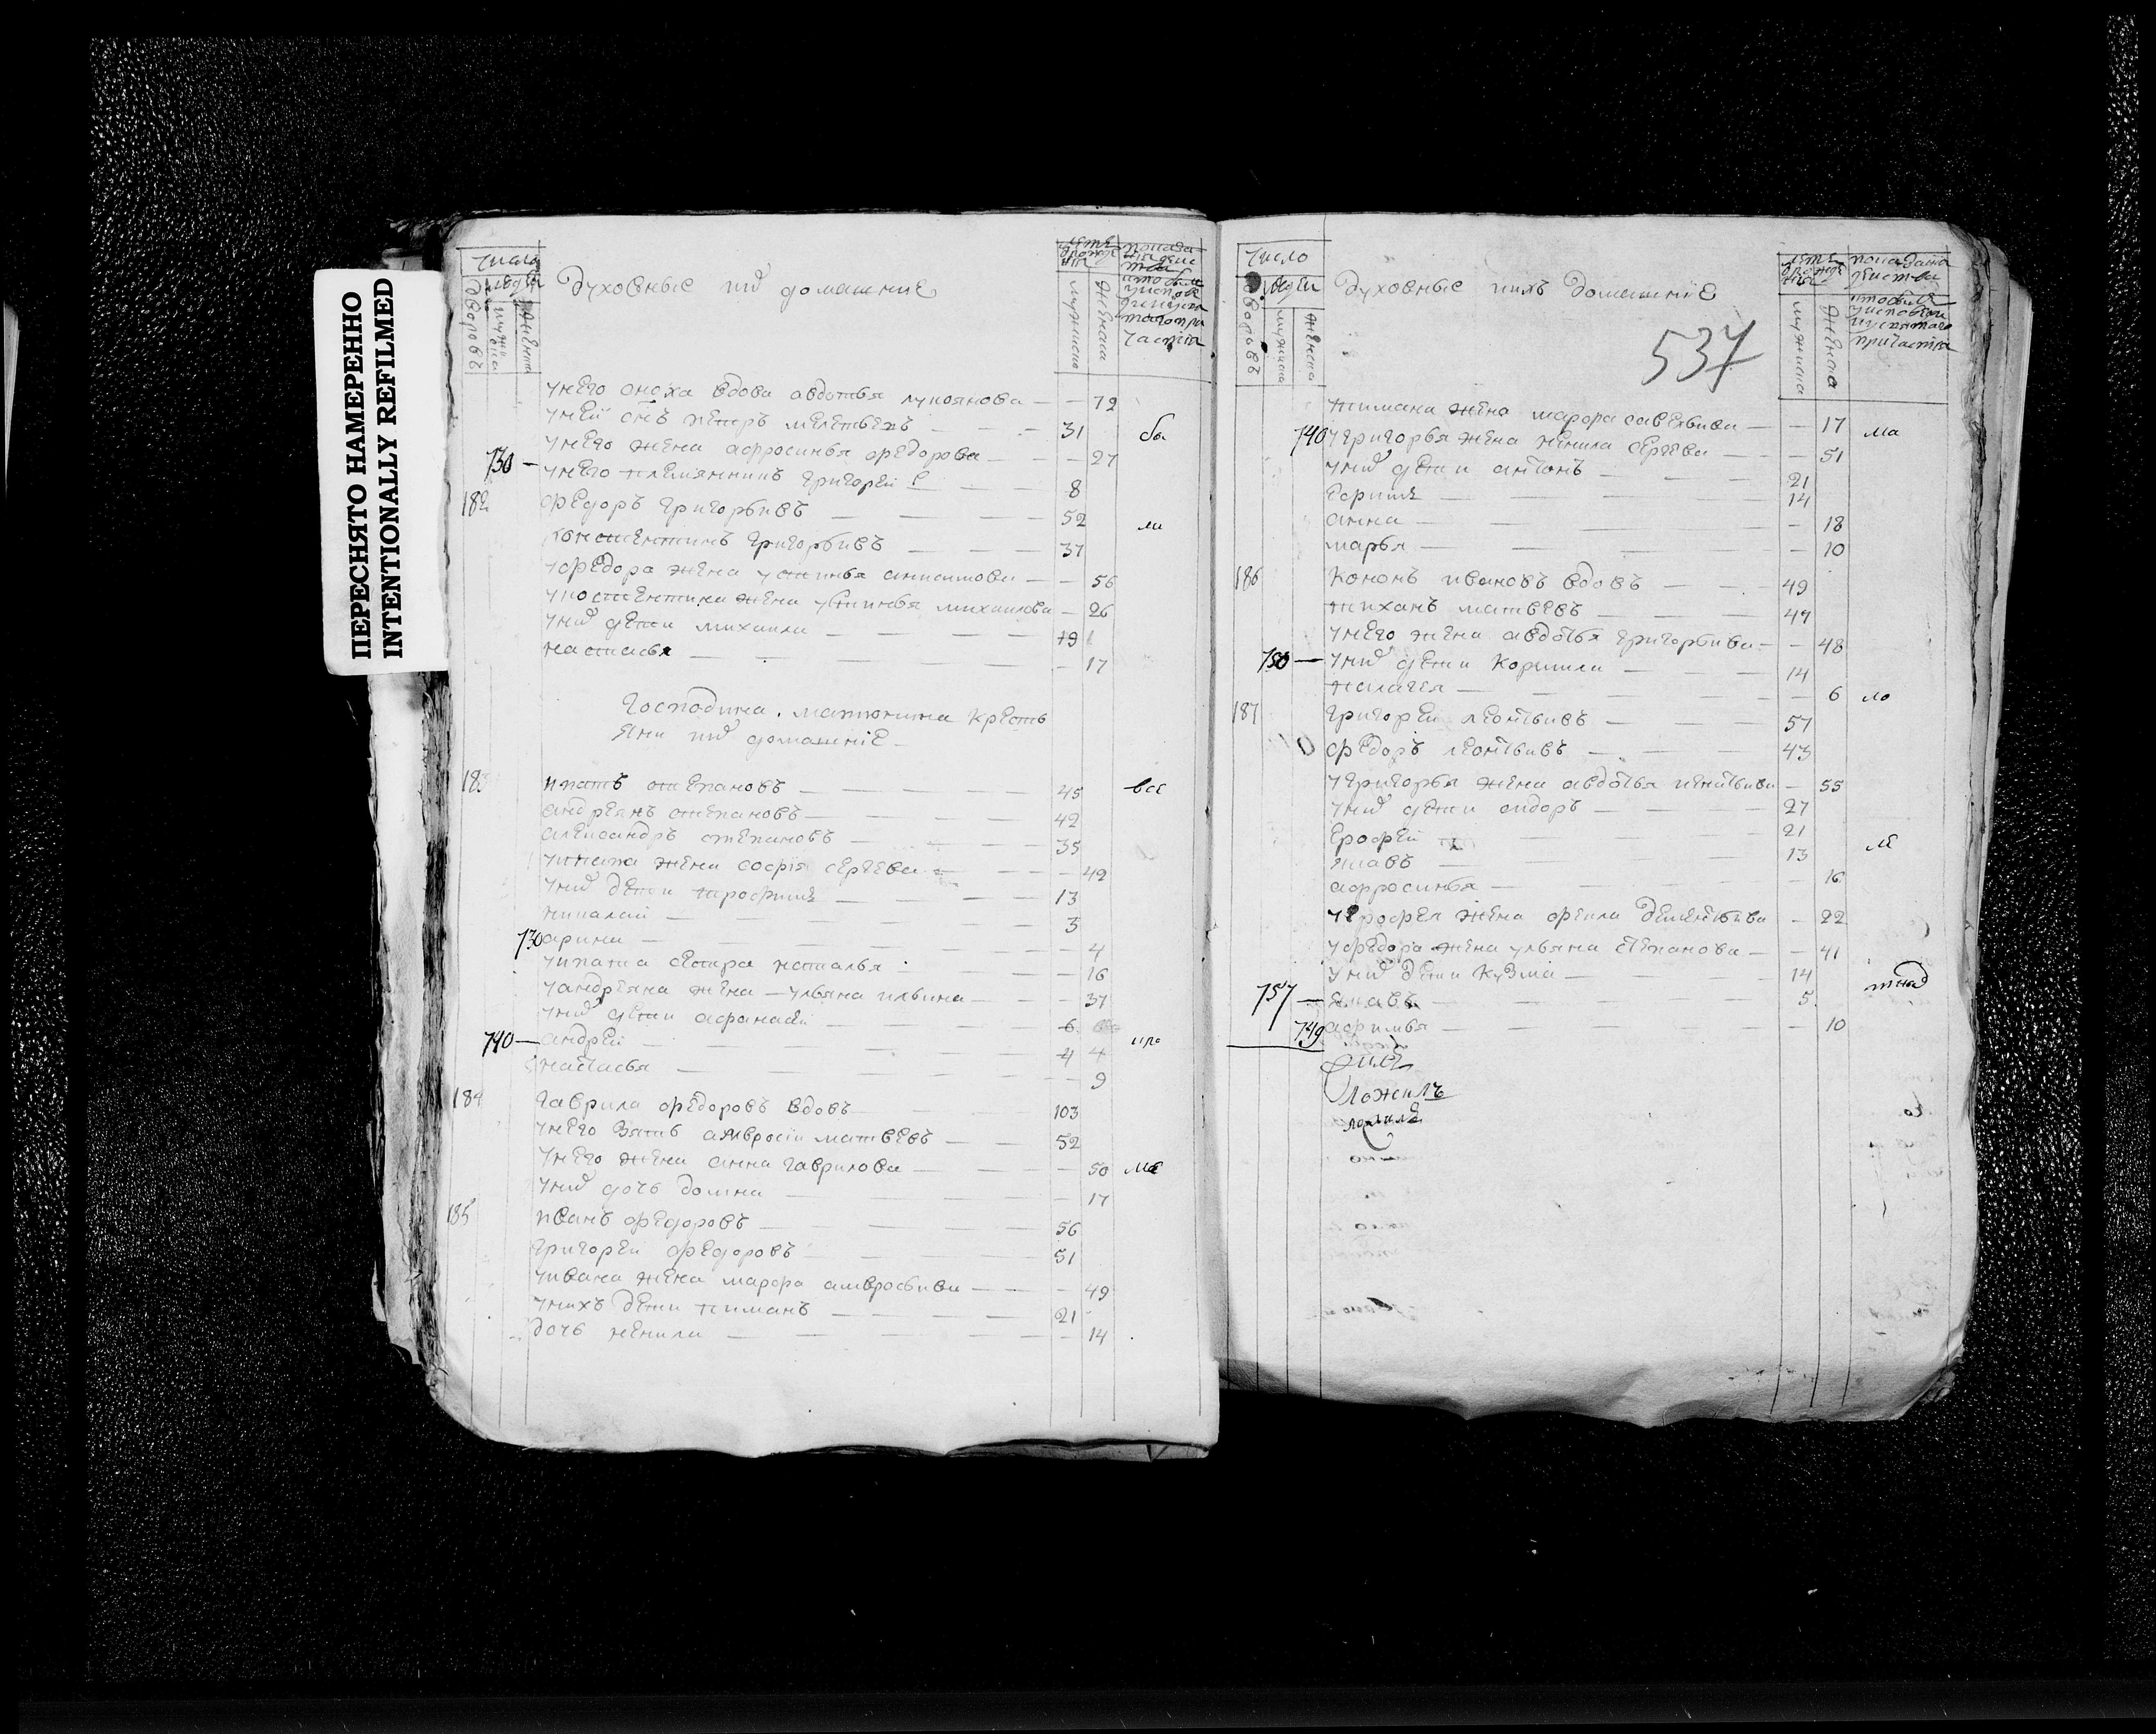 ПЕРЕСНЯТО НАМЕРЕННО
INTENTIONALLY REFILMED
число
людей
дворовъ
мужиска
женска
духовные ихъ домашние
мужиска
женска
у него сноха вдова авдотья лукоянова — 72
у неи снъ петръ 31 бы
у него жена афросинья федорова — 27
730 — у него племянникъ григореи 8
182 федоръ григорьивъ 52 ли
констентинъ григорьивъ 37
у федора жена устинья анисимова — 56
у костентина жена устинья михаилова — 26
у них дети михаила 19
настасья — 17
Господина матюнина кресть
яни их домашніе
183 ипатъ степановъ 45 все
андреянъ степановъ 42
александръ степановъ 35
у ипата жена софія сергева — 42
у них дети трофимъ 13
николаи 3
730 арина — 4
у ипата сестра наталья — 16
у андреяна жена ульяна ильина — 37
у них дети афанасеи 6
740 — андреи 4 4 ипо
настасья — 9
184 гаврила федоровъ вдовъ 103
у него зять амвросіи матвеевъ 52
у него жена анна гаврилова — 50 ме
у них дочь домна — 17
185 иванъ федоровъ 56
григореи федоровъ 51
у ивана жена марфа амвросьива — 49
у нихъ дети пиманъ 21
дочь ненила — 14
число
людеи
дворовъ
мужиска
женска
духовные ихъ домашніе
537
мужиска
женска
пимана жена марфа савельива — 17 ма
740 у григорья жена ненила сергева — 51
у них дети антонъ 21
ефимъ 14
анна — 18
марья — 10
186 кононъ ивановъ вдовъ 49
тиханъ матвеевъ 49
у него жена авдотья григорьива — 48
750 — у них дети кормила 14
палагея — 6 ло
187 григореи леонтьивъ 57
федоръ леонтьивъ 43
у григорья жена авдотья — 55
у них дети сидоръ 27
ерофеи 21
яковъ 13 ме
афросинья — 16
у ерофея жена фекла дементьива — 22
у федора жена ульяна степанова — 41
у них дети кузма 14
757 — яковъ 5
749 афимья — 10
ложилъ